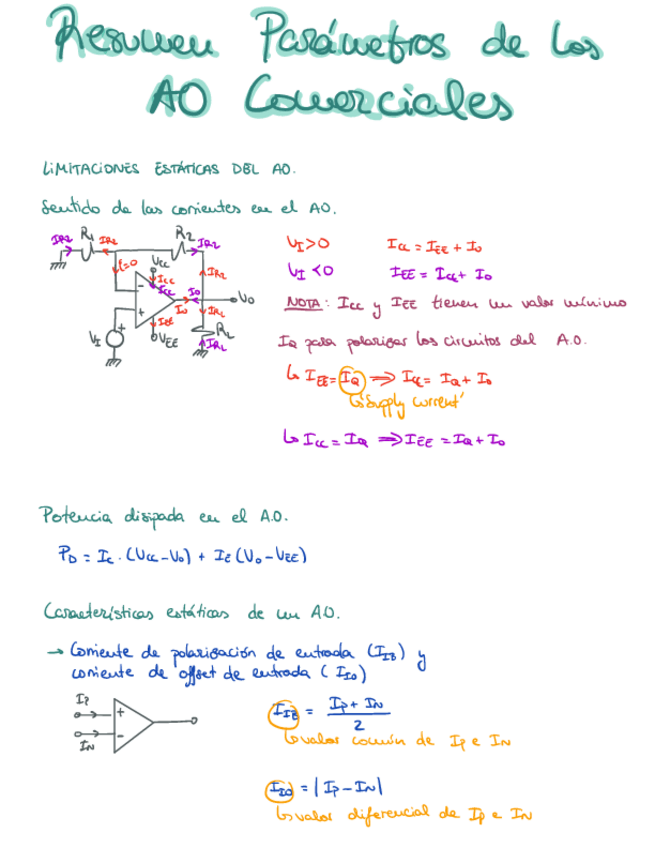 Resumen Parámetros de los
AO Comerciales
LIMITACIONES ESTÁTICAS DEL AO.
Sentido de las corrientes en el AO.
IR2 R1 IR2 R2 IR2
I=0 VCC
ICC
ICC
IR2
- IO VO
+ IO IRL
IEE
VI + VEE RL
IRL
VI>0 ICC = IEE + IO
VI<0 IEE = ICC + IO
NOTA: ICC y IEE tienen un valor mínimo
IQ para polarizar los circuitos del A.O.
↳ IEE = IQ ⇒ ICC = IQ + IO
↳ 'Supply current'
↳ ICC = IQ ⇒ IEE = IQ + IO
Potencia disipada en el A.O.
PD = IC · (VCC - VO) + IE (VO - VEE)
Características estáticas de un AO.
→ Corriente de polarización de entrada (IIB) y
corriente de offset de entrada (IIO)
IP +
IN -
IIB = IP + IN / 2
↳ valor común de IP e IN
IIO = |IP - IN|
↳ valor diferencial de IP e IN